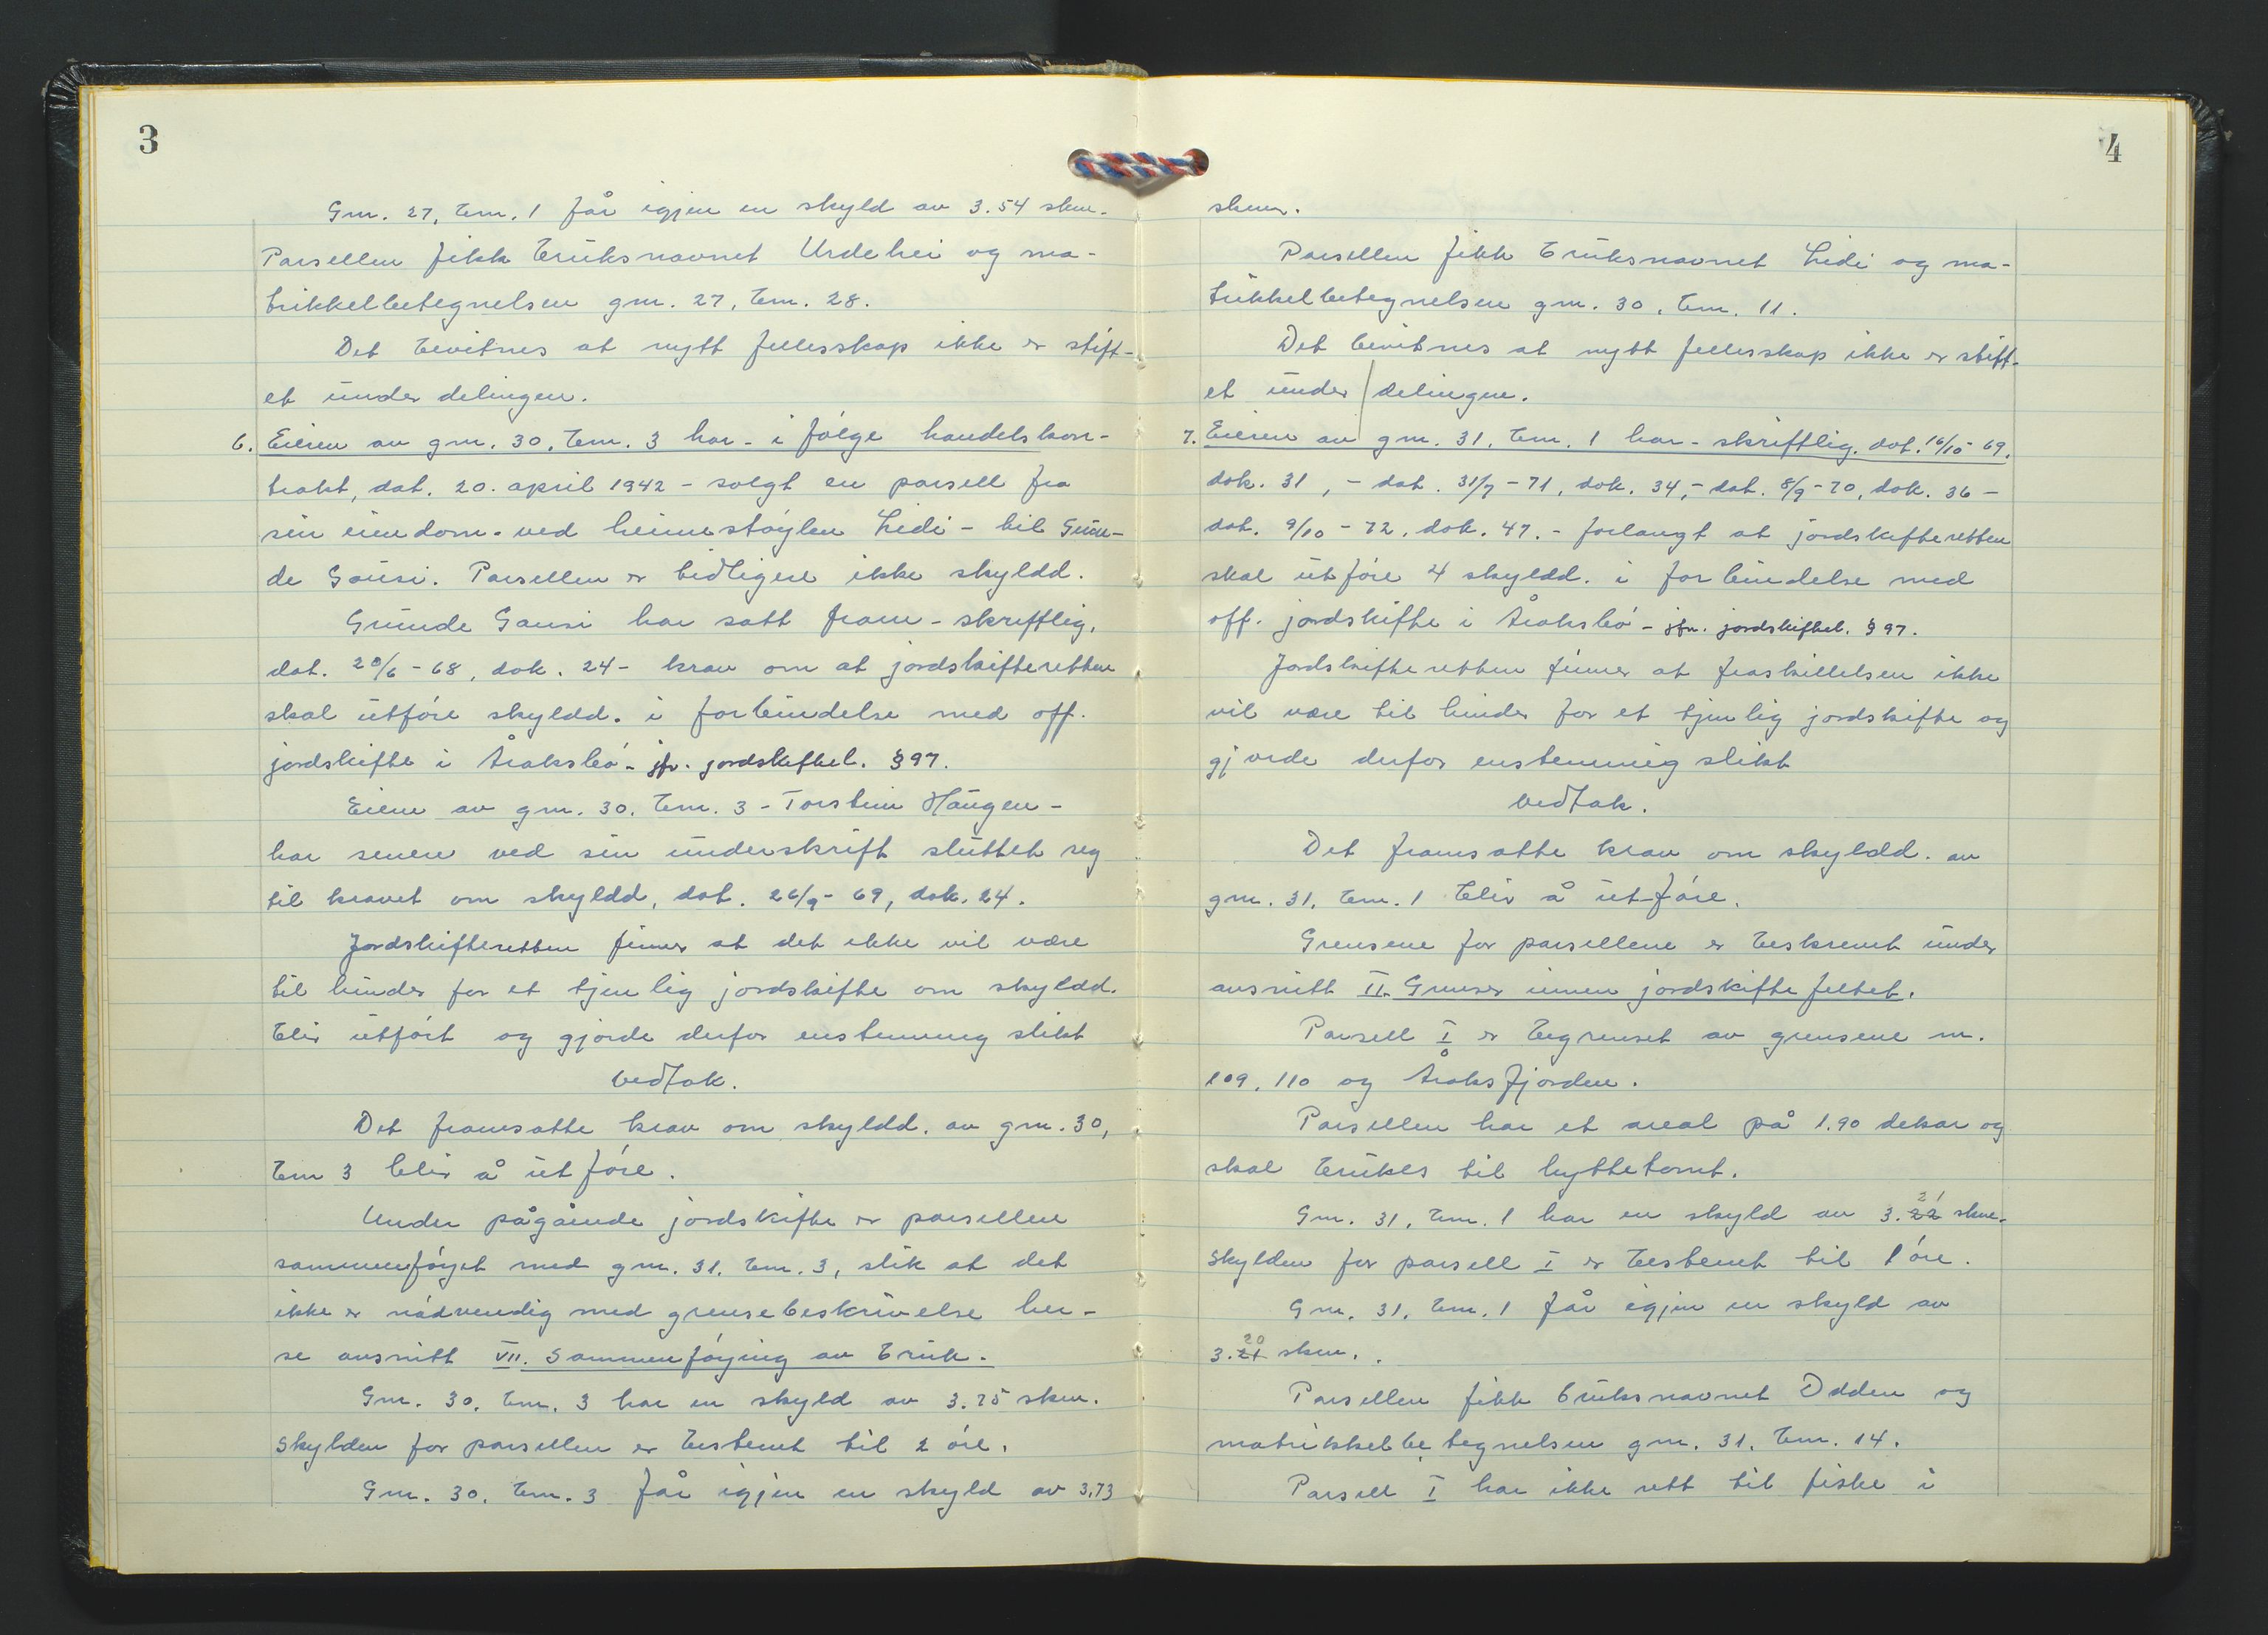 3
Gnr. 27, bnr. 1 får igjen en skyld av 3.54 skm.
Parsellen fikk bruksnavnet Urdehei og ma-
trikkelbetegnelsen gnr. 27, bnr. 28.
Det bevitnes at nytt fellesskap ikke er stift-
et under delingen.
6. Eieren av gnr. 30, bnr. 3 har - i følge handelskon-
trakt, dat. 20. april 1942 - solgt en parsell fra
sin eiendom - ved heimestøylen Lidi - til Gun-
de Gausi. Parsellen er tidligere ikke skyldd.
Gunde Gausi har satt fram - skriftlig,
dat. 20/6 - 68, dok. 24 - krav om at jordskifteretten
skal utføre skyldd. i forbindelse med off.
jordskifte i Åraksbø - jfr. jordskiftel. § 97.
Eieren av gnr. 30, bnr. 3 - Torstein Haugen -
har senere ved sin underskrift sluttet seg
til kravet om skyldd, dat. 26/9 - 69, dok. 24.
Jordskifteretten finner at det ikke vil være
til hinder for et tjenlig jordskifte om skyldd.
blir utført og gjorde derfor enstemmig slikt
vedtak.
Det framsatte krav om skyldd. av gnr. 30,
bnr 3 blir å utføre.
Under pågående jordskifte er parsellen
sammenføyet med gnr. 31, bnr. 3, slik at det
ikke er nødvendig med grensebeskrivelse her -
se avsnitt VII. Sammenføying av bruk.
Gnr. 30, bnr. 3 har en skyld av 3.75 skm.
Skylden for parsellen er bestemt til 2 øre.
Gnr. 30, bnr. 3 får igjen en skyld av 3.73
4
skm.
Parsellen fikk bruksnavnet Lidi og ma-
trikkelbetegnelsen gnr. 30, bnr. 11.
Det bevitnes at nytt fellesskap ikke er stift-
et under delingen.
7. Eieren av gnr. 31, bnr. 1 har - skriftlig, dat. 16/10 - 69,
dok. 31, - dat. 31/7 - 71, dok. 34, - dat. 8/9 - 70, dok. 36 -
dat. 9/10 - 72, dok. 47. - forlangt at jordskifteretten
skal utføre 4 skyldd. i forbindelse med
off. jordskifte i Åraksbø - jfr. jordskiftel. § 97.
Jordskifteretten finner at fraskillelsen ikke
vil være til hinder for et tjenlig jordskifte og
gjorde derfor enstemmig slikt
vedtak.
Det framsatte krav om skyldd. av
gnr. 31, bnr. 1 blir å utføre.
Grensene for parsellene er beskrevet under
avsnitt II. Grenser innen jordskiftefeltet.
Parsell I er begrenset av grensene nr.
109, 110 og Åraksfjorden.
Parsellen har et areal på 1.90 dekar og
skal brukes til hyttetomt.
21
Gnr. 31, bnr. 1 har en skyld av 3.22 skm.
Skylden for parsell I er bestemt til 1 øre.
Gnr. 31, bnr. 1 får igjen en skyld av
20
3.21 skm.
Parsellen fikk bruksnavnet Odden og
matrikkelbetegnelsen gnr. 31, bnr. 14.
Parsell I har ikke rett til fiske i